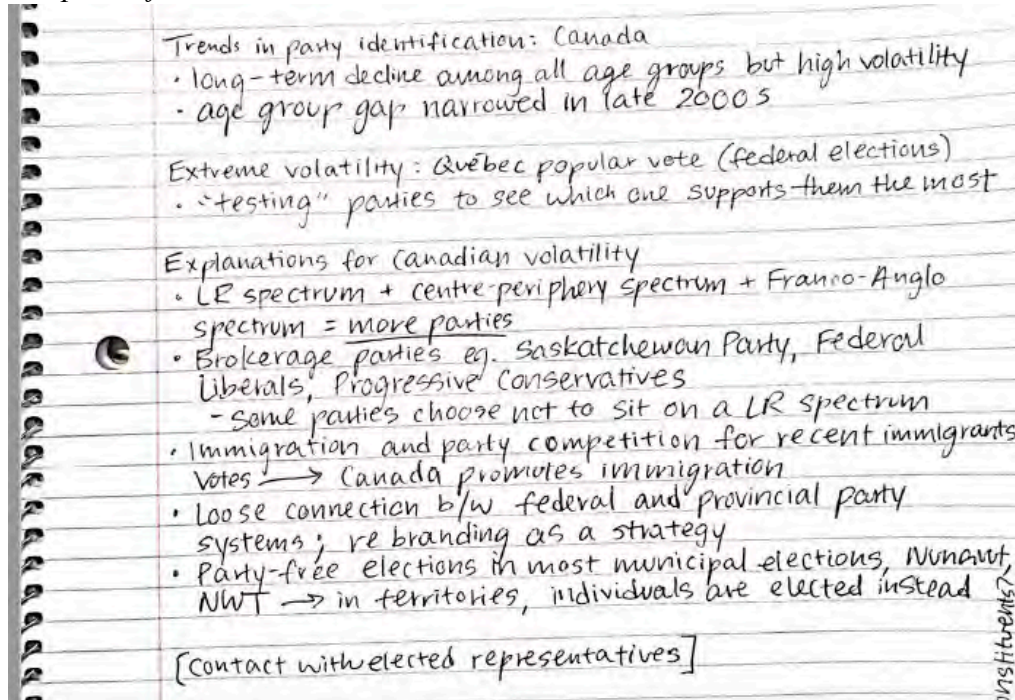 Trends in party identification: Canada
• long-term decline among all age groups but high volatility
• age group gap narrowed in late 2000s
Extreme volatility: Québec popular vote (federal elections)
• "testing" parties to see which one supports them the most
Explanations for Canadian volatility
• LR spectrum + centre-periphery spectrum + Franco-Anglo
spectrum = more parties
• Brokerage parties eg. Saskatchewan Party, Federal
Liberals, Progressive Conservatives
- some parties choose not to sit on a LR spectrum
• Immigration and party competition for recent immigrants
votes → Canada promotes immigration
• Loose connection b/w federal and provincial party
systems; re branding as a strategy
• Party-free elections in most municipal elections, Nunavut,
NWT → in territories, individuals are elected instead
[contact with elected representatives]